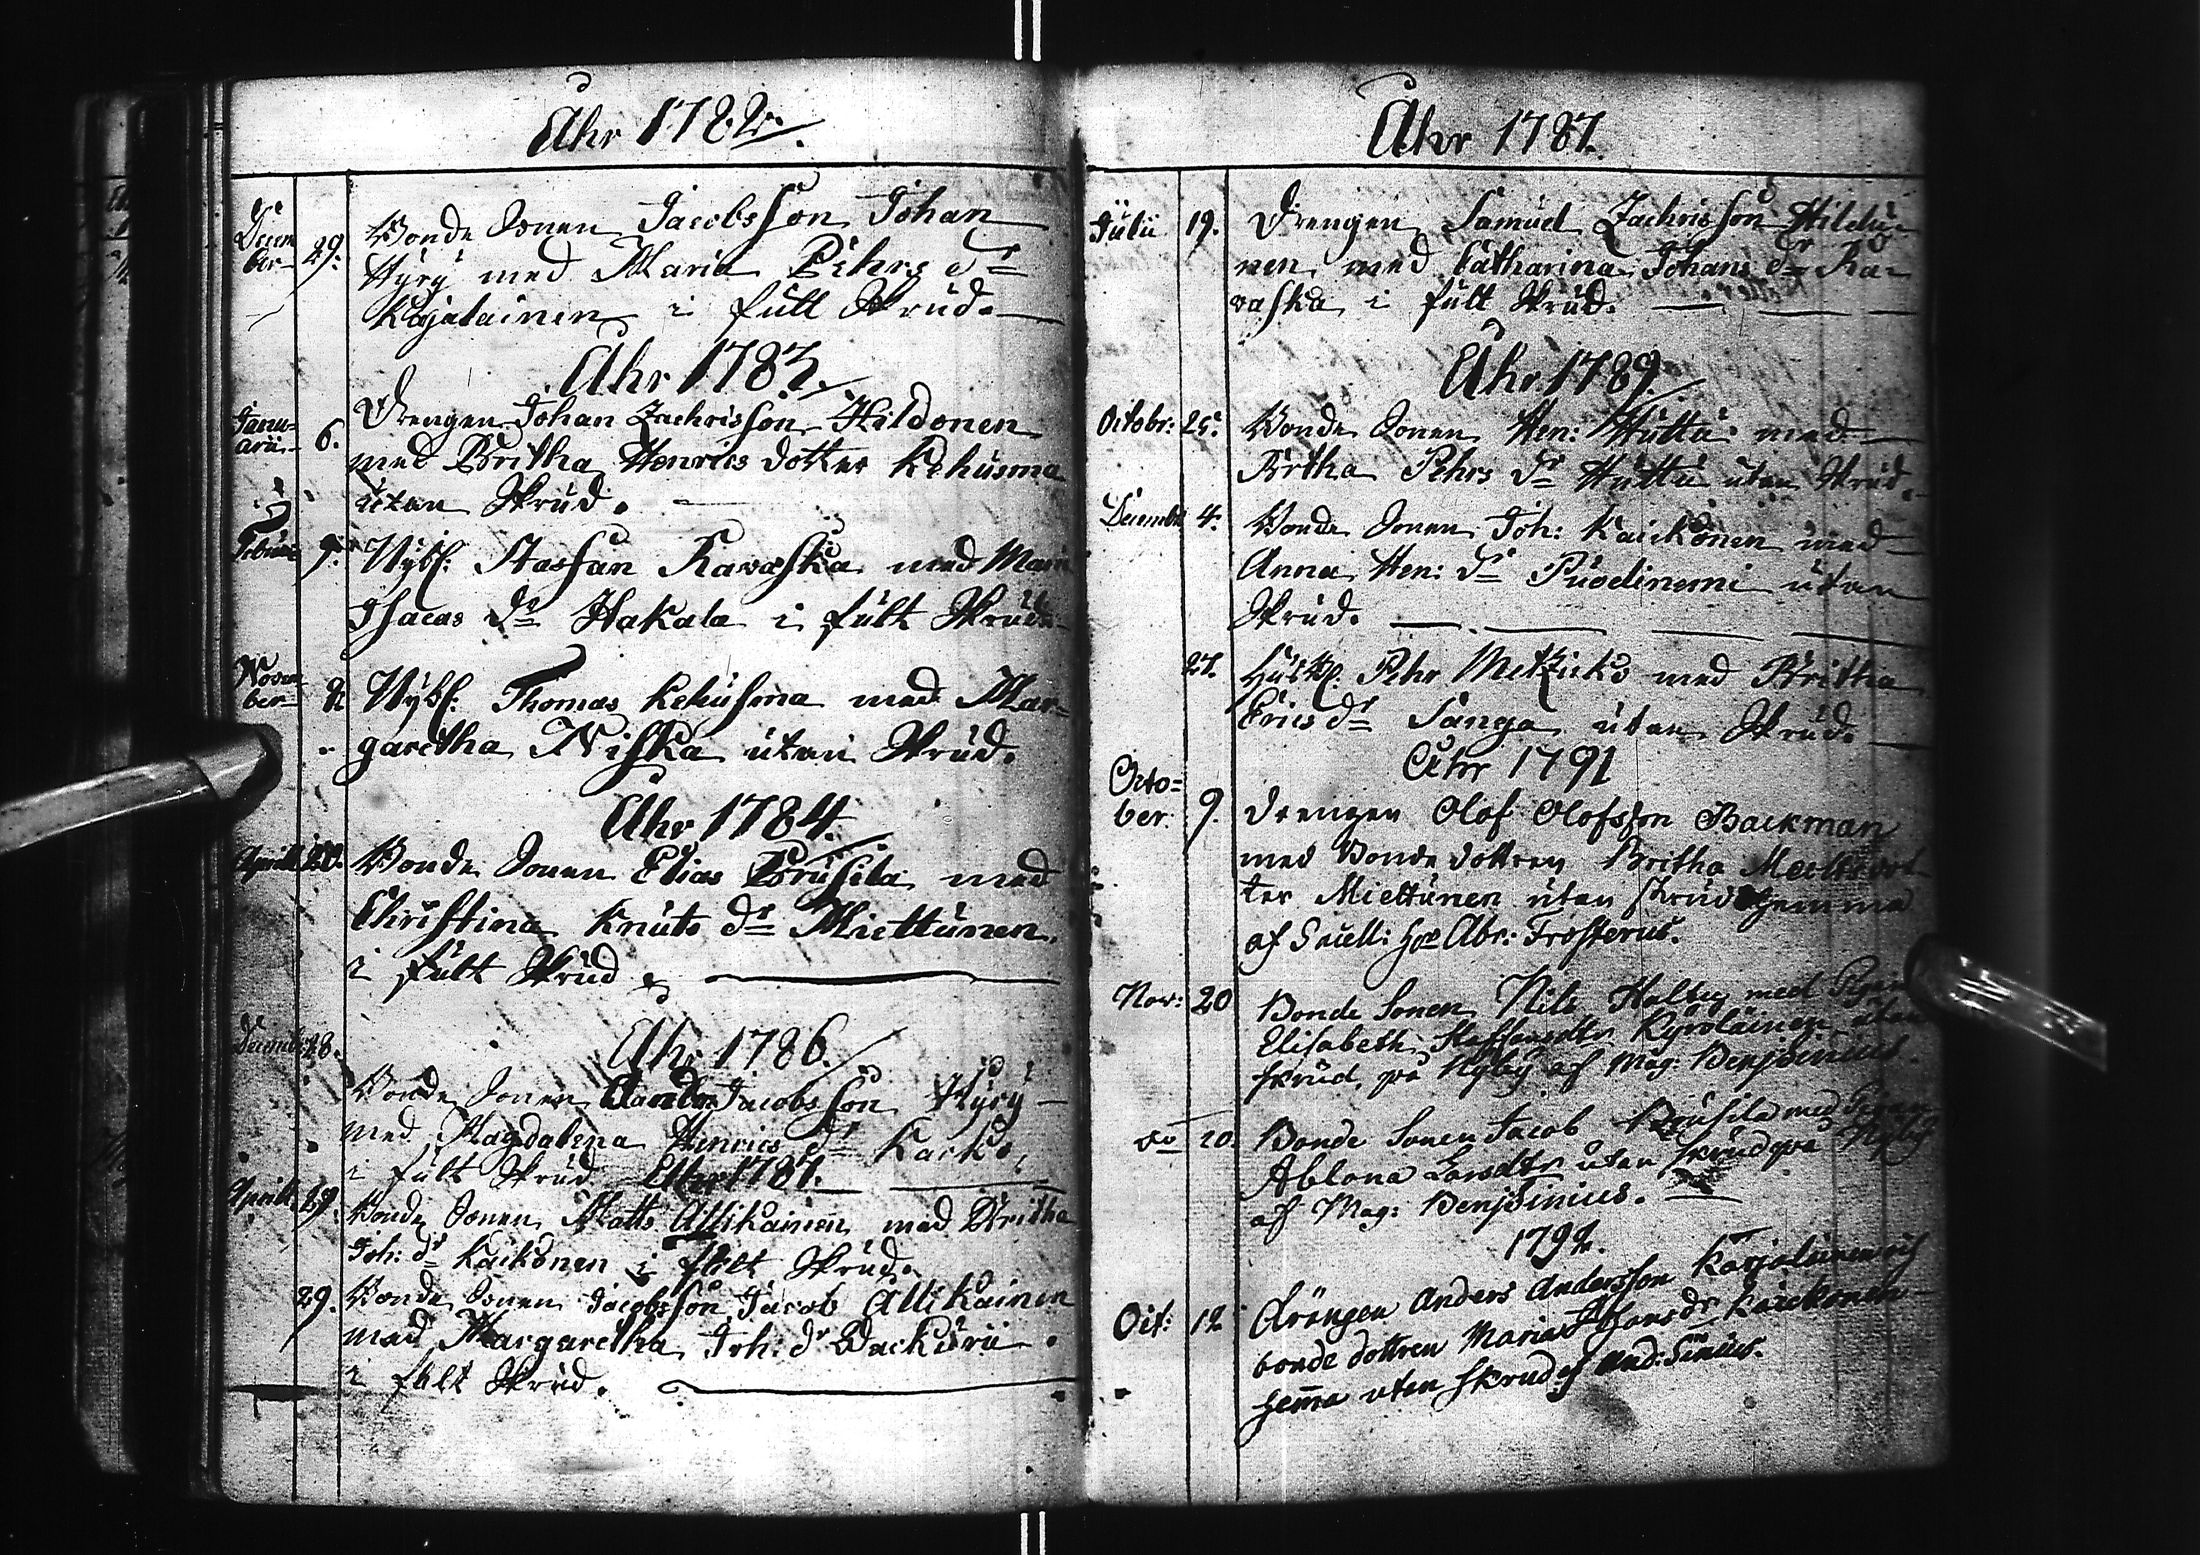 Åhr 1782.
Decem 29. Bonde Sonen Jacobsson Johan
ber
Hÿrÿ med Maria Pehrs dr
Kajalainen i fult Skrud.
Åhr 1783.
Janu- 6. Drengen Johan Zachrisson Hildonen
arii
med Britha Henrics dotter Kehusma
utan Skrud.
9. Nÿb: Staffan Kavaska med Mari
Isacs dr Hakala i fult Skrud
Novem-
ber Nÿb: Thomas Kehusma med Mar-
garetha Niska utan Skrud.
Åhr 1784.
April Bonde Sonen Elias Prusila med
Christina Knuts dr Miettunen
i fult Skrud
Åhr 1786.
Decemb: 28.
Bonde Sonen Jacobsson Hÿrÿ
med Magdalena Henrics dr Karks
i fult Skrud Åhr 1787.
April 29. Bonde Sonen Matts Allikainen med Britha
Joh: dr Kaikonen i fult Skrud.
29. Bonde Sonen Jacobsson Jacob Allikainen
med Margaretha Joh: dr
i fult Skrud.
Åhr 1787.
Julii 19. Drengen Samuel Zachrisson Hildu-
nen med Catharina Johans dr Ka-
vaska i fult Skrud.
Åhr 1789.
Octobr: 25. Bonde Sonen Hen: Huttu med
Brtha Pehrs dr Huttu utan Skrud.
Decemb 4. Bonde Sonen Joh: Kaickonen med
Anna Hen: dr Puolinemi utan
Skrud.
27. Pehr Metzicks med Britha
Erics dr Sanga utan Skrud.
Åhr 1791
Octo=
ber. 9. drengen Olof Olofsson Backman
med Bonde dottren Britha Mattsdot
ter Miettunen utan skrud hemma
af Abr: Frosterus.
Nov: 20 Bonde Sonen Nils Halbeg med Pigan
Elisabeth Staffansdtr Kyrolainen utan
skrud, på Nÿbÿ af Mag: Benj. Sinius
do 20. Bonde Sonen Jacob Prusila med Pigan
Ablona Larsdtr utan skrud på Nÿbÿ
af Mag: Benj. Sinius.
1792.
Oct: 12 drängen Anders Andersson Karjalainen och
bonde dottren Maria dr Kaickonen
hema utan skrud af And: Sinius.